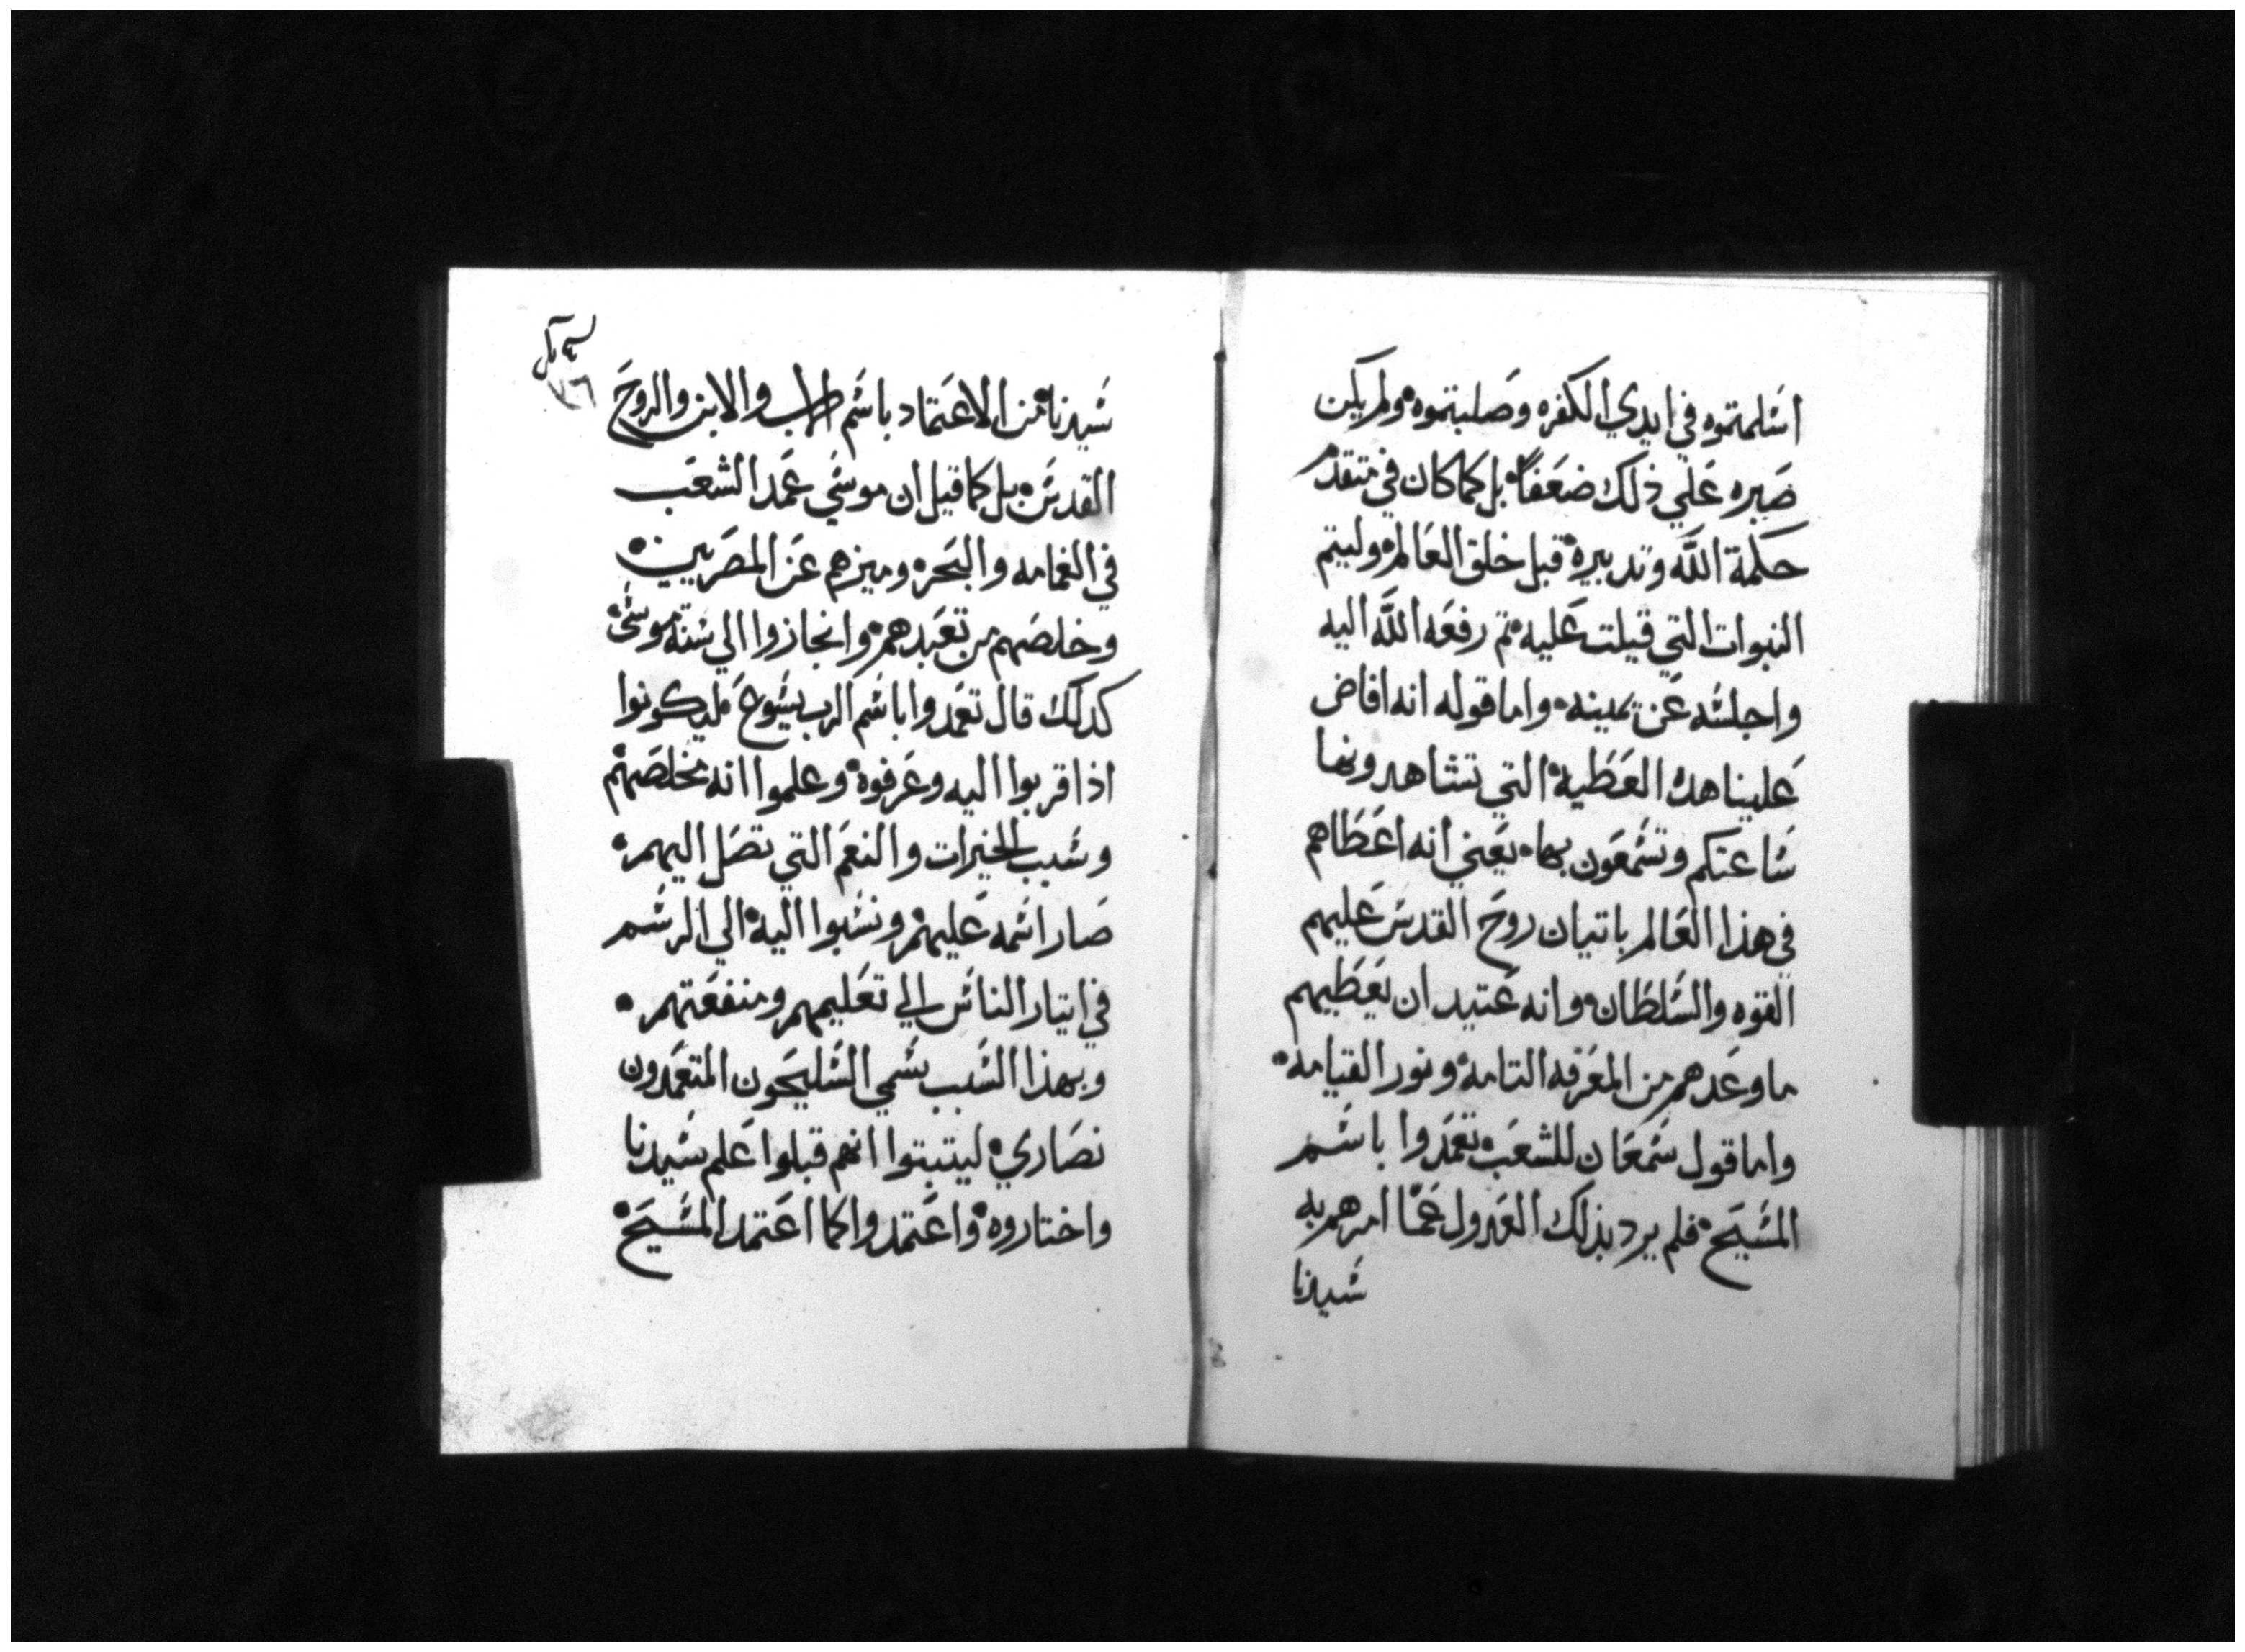 اسلمتموه في ايدي الكفره وصلبتموه ولم يكن
صبره علي ذلك ضعفاً بل كما كان في متقدم
حكمة الله وتدبيره قبل خلق العالم وليتم
النبوات التي قيلت عليه تم رفعه الله اليه
واجلسه عن يمينه واما قوله انه افاض
علينا هده العطية التي تشاهدونها
ساعتكم وتسمعون بها يعني انه اعطاهم
في هذا العالم باتيان روح القدس عليهم
القوه والسلطان وانه عتيد ان يعطيهم
ما وعدهم من المعرفه التامه ونور القيامه
واما قول سمعان للشعب تعمدوا باسم
المسيح فلم يرد بذلك العدول عما امرهم به
سيدنا
٧٦
سيدنا من الاعتماد باسم الاب والابن والروح
القدس بل كما قيل ان موسي عمد الشعب
في الغمامه والبحر وميزهم عن المصريين
وخلصهم من تعبدهم وانجازوا الي سنة موسي
كدلك قال تعمدوا باسم الرب يسوع ليكونوا
اذا قربوا اليه وعرفوه وعلموا انه مخلصهم
وسبب الخيرات والنعم التي تصل اليهم
صار اسمه عليهم ونسبوا اليه الي الرسم
في ايتار الناس الي تعليمهم ومنفعتهم
وبهذا السبب سمي السليحون المتعمدون
نصاري ليتبتوا انهم قبلوا علم سيدنا
واختاروه واعتمدوا كما اعتمد المسيح